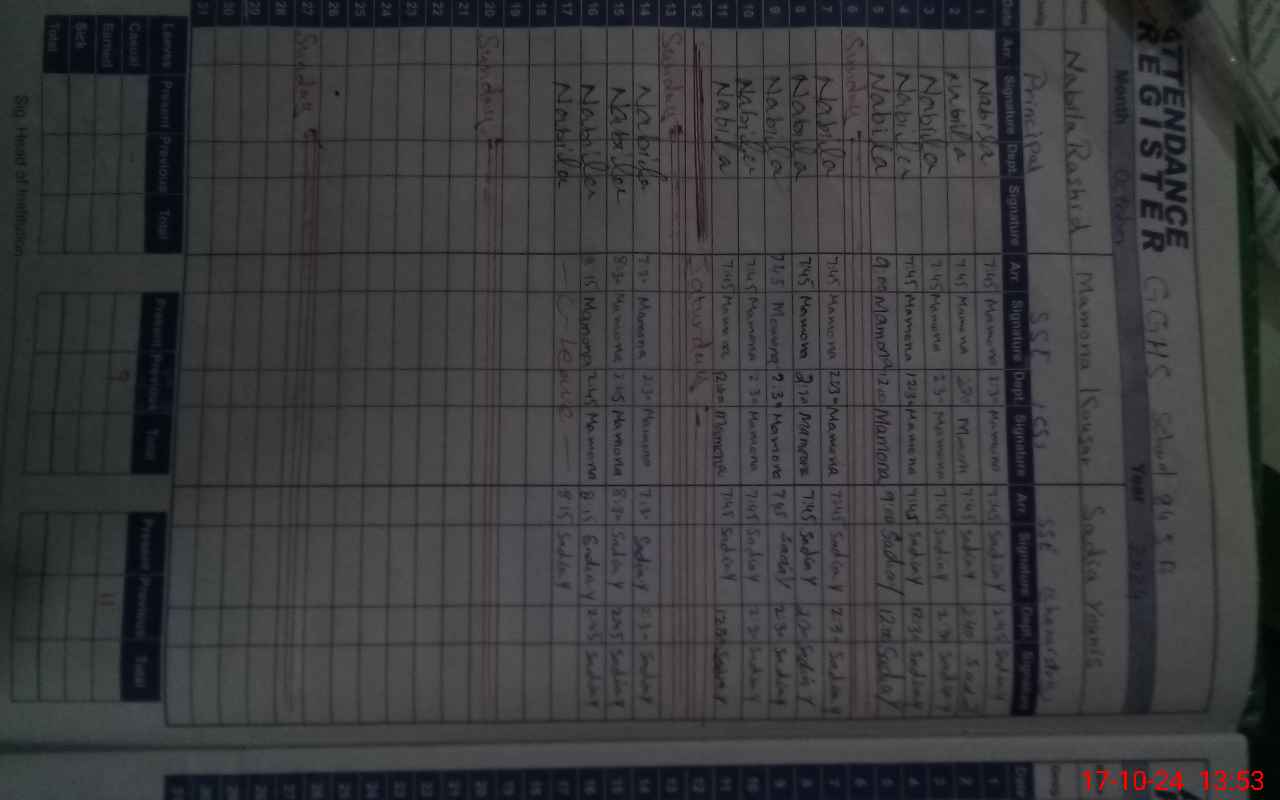 ATTENDANCE REGISTER GGHS School
Month October Year 2024
Nabila Rashid Mamona Kousar Sadia Younis
Principal SSE (CS) SSE (Chemistry)
Date Arr. Signature Dept. Signature Arr. Signature Dept. Signature Arr. Signature Dept. Signature
1 Nabila 7:45 Mamona 2:30 Mamona 7:45 Sadia Y 2:45 Sadia Y
2 Nabila 7:45 Mamona Mamona 7:45 Sadia Y 2:40
3 Nabila 7:45 Mamona 2:30 Mamona 7:45 Sadia Y 2:30 Sadia Y
4 Nabila 7:45 Mamona 12:30 Mamona 7:45 Sadia Y 12:30 Sadia Y
5 Nabila 9:00 Mamona 12:00 Mamona 9:00 Sadia Y 12:00 Sadia Y
6 Sunday
7 Nabila 7:45 Mamona 2:30 Mamona 7:45 Sadia Y 2:30 Sadia Y
8 Nabila 7:45 Mamona 2:30 Mamona 7:45 Sadia Y 2:30 Sadia Y
9 Nabila 7:45 Mamona 2:30 Mamona 7:45 Sadia Y 2:30 Sadia Y
10 Nabila 7:45 Mamona 2:30 Mamona 7:45 Sadia Y 2:30 Sadia Y
11 Nabila 7:45 Mamona 12:30 Mamona 7:45 Sadia Y 12:30 Sadia Y
12 Saturday
13 Sunday
14 Nabila 7:30 Mamona 2:30 Mamona 7:30 Sadia Y 2:30 Sadia Y
15 Nabila 8:30 Mamona 2:45 Mamona 8:30 Sadia Y 2:45 Sadia Y
16 Nabila 8:15 Mamona 2:45 Mamona 8:15 Sadia Y 2:45 Sadia Y
17 Nabila — C-leave — 8:15 Sadia Y
18
19
20 Sunday
21
22
23
24
25
26
27 Sunday
28
29
30
31
Leave Present Previous Total Present Previous Total Present Previous Total
Casual
Earned 9 11
Sick
Total
Sig. Head of Institution
17-10-24 13:53